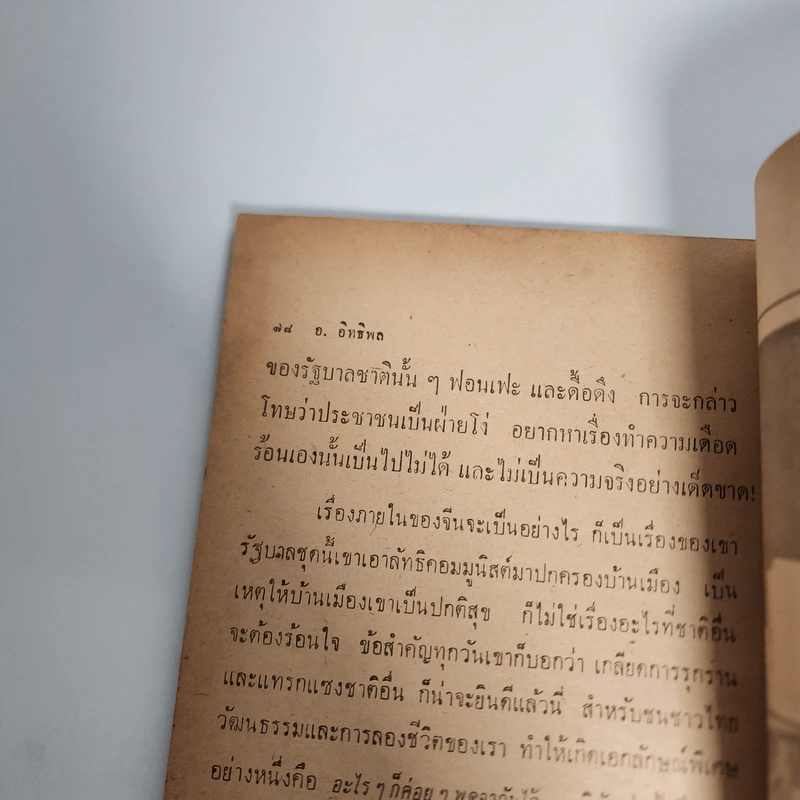 ๗๘ อ. อิทธิพล
ของรัฐบาลชาตินั้น ๆ ฟอนเฟะ และดื้อดึง การจะกล่าว
โทษว่าประชาชนเป็นฝ่ายโง่ อยากหาเรื่องทำความเดือด
ร้อนเองนั้นเป็นไปไม่ได้ และไม่เป็นความจริงอย่างเด็ดขาด!
เรื่องภายในของจีนจะเป็นอย่างไร ก็เป็นเรื่องของเขา
รัฐบาลชุดนี้เขาเอาลัทธิคอมมูนิสต์มาปกครองบ้านเมือง เป็น
เหตุให้บ้านเมืองเขาเป็นปกติสุข ก็ไม่ใช่เรื่องอะไรที่ชาติอื่น
จะต้องร้อนใจ ข้อสำคัญทุกวันเขาก็บอกว่า เกลียดการรุกราน
และแทรกแซงชาติอื่น ก็น่าจะยินดีแล้วนี่ สำหรับชนชาวไทย
วัฒนธรรมและการลองชีวิตของเรา ทำให้เกิดเอกลักษณ์พิเศษ
อย่างหนึ่งคือ อะไร ๆ ก็ค่อย ๆ พูดจากันได้